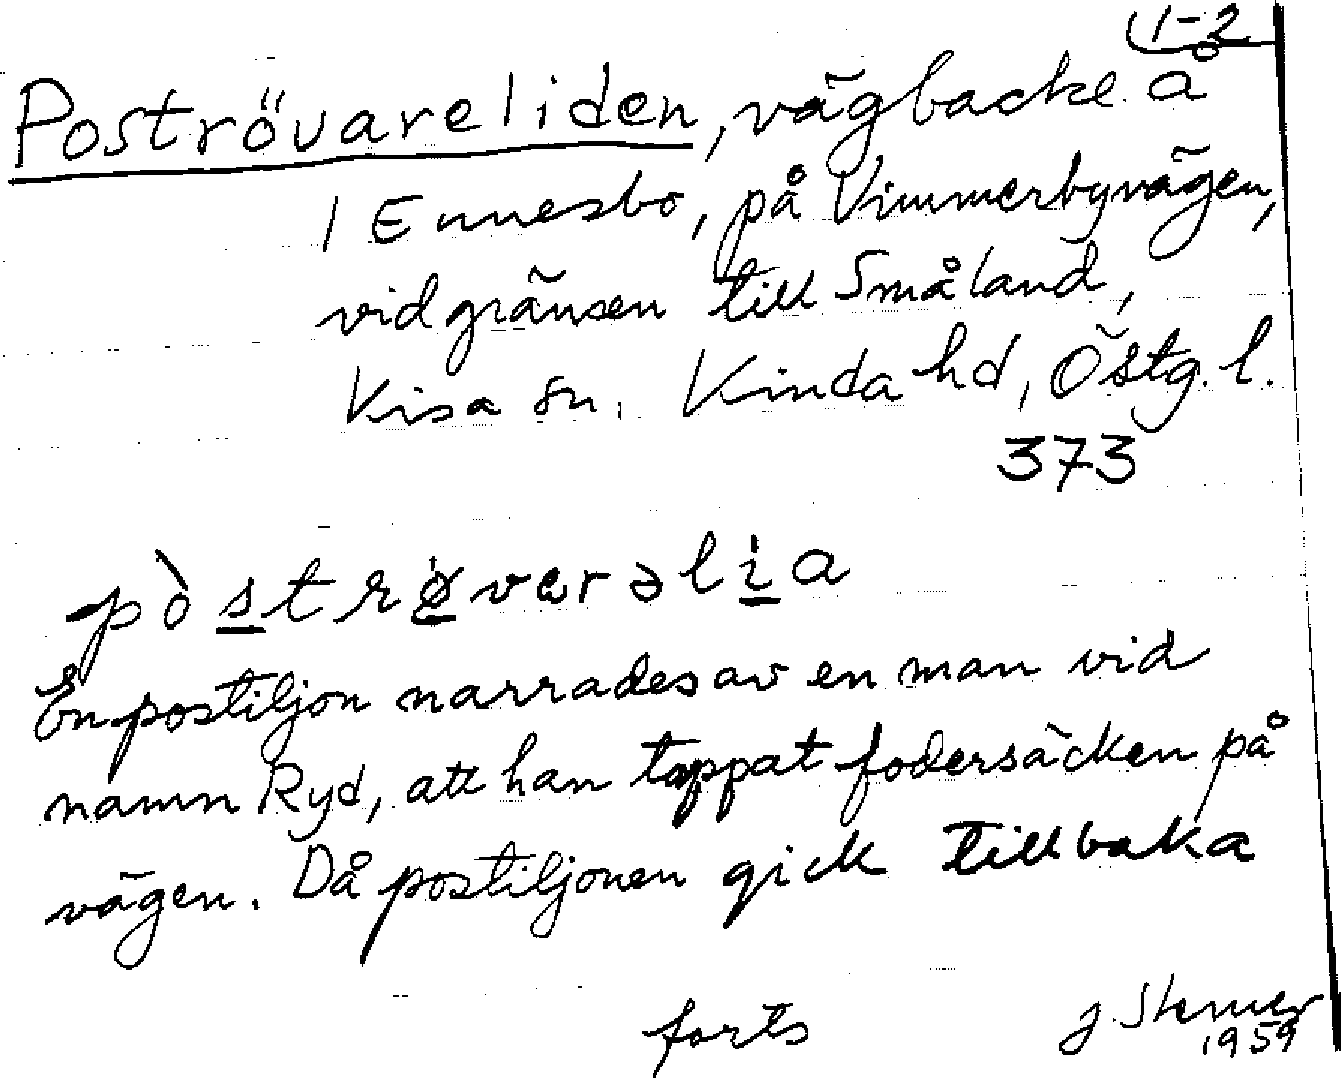 1-2
Poströvareliden, vägbacke å
1 Ennesbo, på Vimmerbyvägen,
vid gränsen till Småland,
Kisa sn. Kinda hd, Östg. l.
373
pòströvarəlia
En postiljon narrades av en man vid
namn Ryd, att han tappat fodersäcken på
vägen. Då postiljonen gick tillbaka
forts
J.
1959